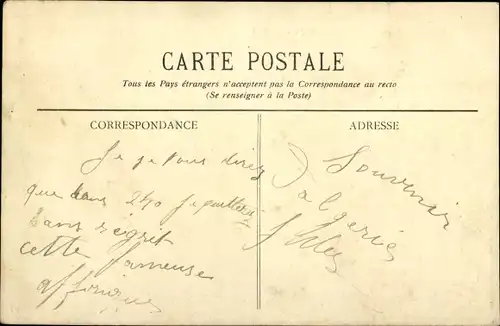 CARTE POSTALE
Tous les Pays étrangers n'acceptent pas la Correspondance au recto
(Se renseigner à la Poste)
CORRESPONDANCE
ADRESSE
Je je vous dirais
que dans 240 je quitterais
sans régrit
cette fameuse
affrique
Souvenir
D'algerie